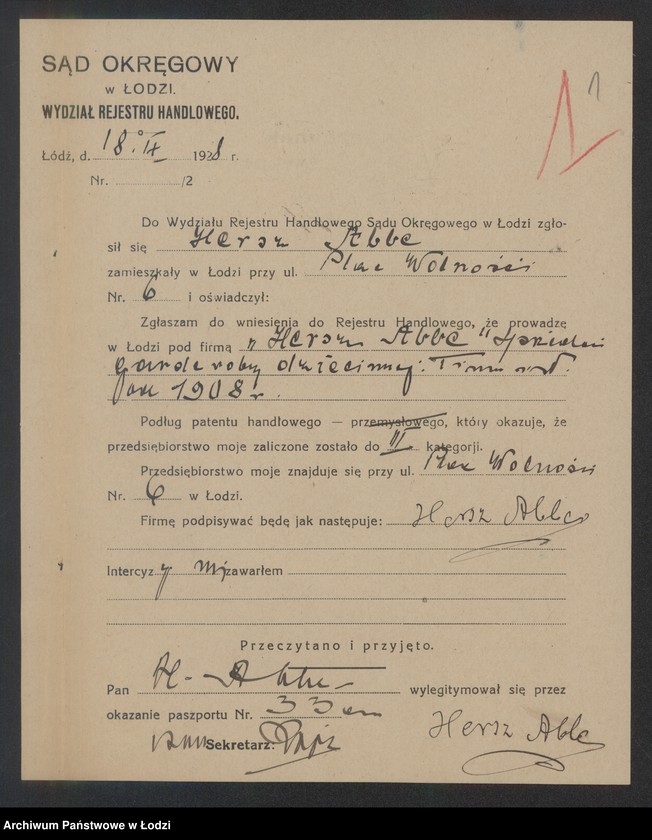 SĄD OKRĘGOWY
w ŁODZI.
WYDZIAŁ REJESTRU HANDLOWEGO.
1
Łódź, d. 18.IX 1928 r.
Nr. /2
Do Wydziału Rejestru Handlowego Sądu Okręgowego w Łodzi zgło-
sił się Hersz Abbe
zamieszkały w Łodzi przy ul. Plac Wolności
Nr. 6 i oświadczył:
Zgłaszam do wniesienia do Rejestru Handlowego, że prowadzę
w Łodzi pod firmą „Hersz Abbe"
garderoby dziecinnej. Firma istn.
1908 r.
Podług patentu handlowego — przemysłowego, który okazuje, że
przedsiębiorstwo moje zaliczone zostało do III kategorji.
Przedsiębiorstwo moje znajduje się przy ul. Plac Wolności
Nr. 6 w Łodzi.
Firmę podpisywać będę jak następuje: Hersz Abbe
Intercyzy nie zawarłem
Przeczytano i przyjęto.
Pan H. Abbe wylegitymował się przez
okazanie paszportu Nr. 33
Hersz Abbe
Sekretarz:
Archiwum Państwowe w Łodzi